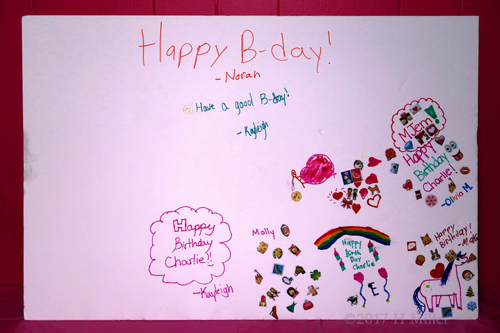 Happy B-day!
-Norah
Have a good B-day!
-Kayleigh
Happy
Birthday
Charlie!!
-Kayleigh
Molly
Happy
Birthday
Charlie!
-Olivia M.
Happy
Birth
Day
Charlie
E
Happy
Birthday!
©2017 H Miller